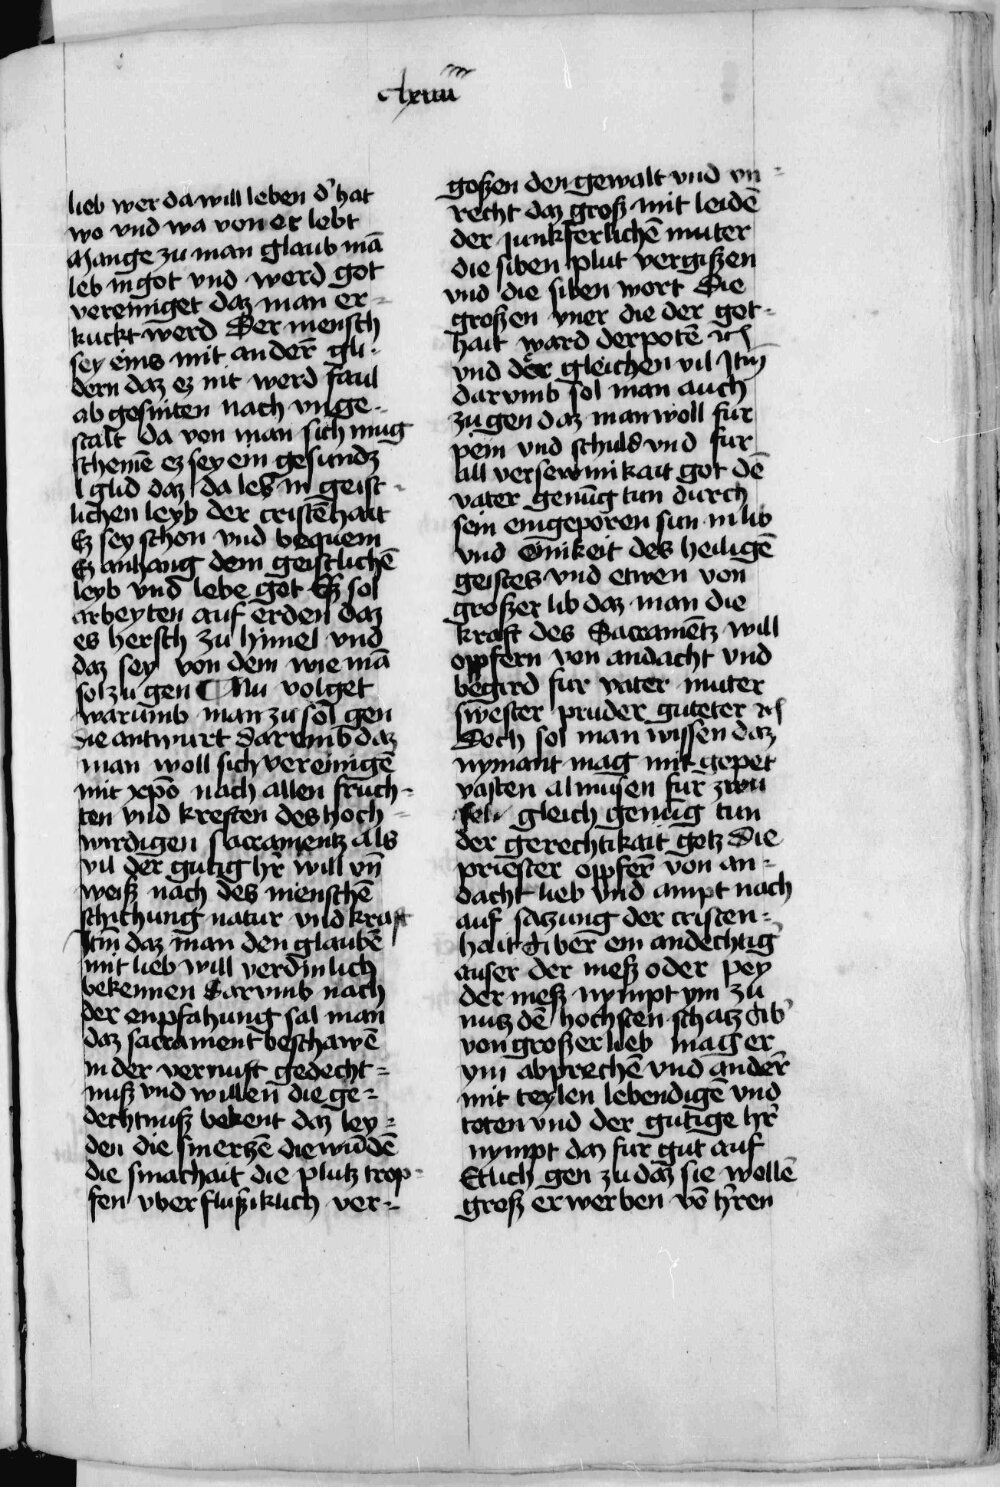 clxiiii
lieb wer da will leben d' hat
wo vnd wa von er lebt
Mange zu man glaub mā
leb in got vnd werd got
vereiniget daz man er-
kuckt werd Der mensch
sey eins mit andeȓ gli-
dern daz ez nit werd faul
ab gesniten nach vnge-
stalt da von man sich mug
schemē ez sey ein gesundz
glid daz da leb in geist-
lichen leyb der cristēhait
Ez sey schon vnd bequem
Ez anhang dem geistlichē
leyb vnd lebe got Ez sol
arbeyten auf erden daz
es hersch zu himel vnd
daz sey von dem wie mā
sol zu gen ¶ Nu volget
warumb man zu sol gen
die antwurt darvmb daz
man woll sich vereinigē
mit xp̄o nach allen fruch-
ten vnd kreften des hoch-
wirdigen sacramentz als
vil der gutig hr̄ will vn̄
weiß nach des menschē
schichung natur vnd kraft
Itm̄ daz man den glaubē
mit lieb will verdinlich
bekennen darvmb nach
der enpfahung sal man
daz sacrament beschawē
in der vernuft gedecht-
nuß vnd willen die ge-
dechtnuß bekent daz ley-
den die smerczē die wūdē
die smachait die plutz trop-
fen vberflußiklich ver-
goßen den gewalt vnd vn-
recht daz groß mit leidē
der junkferlichē muter
die siben plut vergißen
vnd die siben wort Die
großen vner die der got-
hait ward derpotē ꝛc
vnd der gleichen vil Itm̄
darvmb sol man auch
zu gen daz man woll fur
pein vnd schuld vnd fur
all versewmikait got dē
vater genūg tun durch
sein eingeporen sun in lib
vnd einikeit des heiligē
geistes vnd etwen von
großer lib daz man die
kraft des Sacramētz will
opfern von andacht vnd
begird fur vater muter
swester pruder guteter ꝛc
Doch sol man wissen daz
nymant mag mit gepet
vasten almusen fur
gleich genūg tun
der gerechtikait gotz Die
priester opfeȓ von an-
dacht lieb vnd ampt nach
auf satzung der cristen-
hait ein andechtig'
auser der meß oder pey
der meß nympt ym zu
nutz dē hochsten schatz
von großer lieb mag er
ym abprechē vnd andeȓ
mit teylen lebendigē vnd
toten vnd der gutige hr̄
nympt daz fur gut auf
Etlich gen zu daz sie wollē
groß erwerben vō hr̄ren